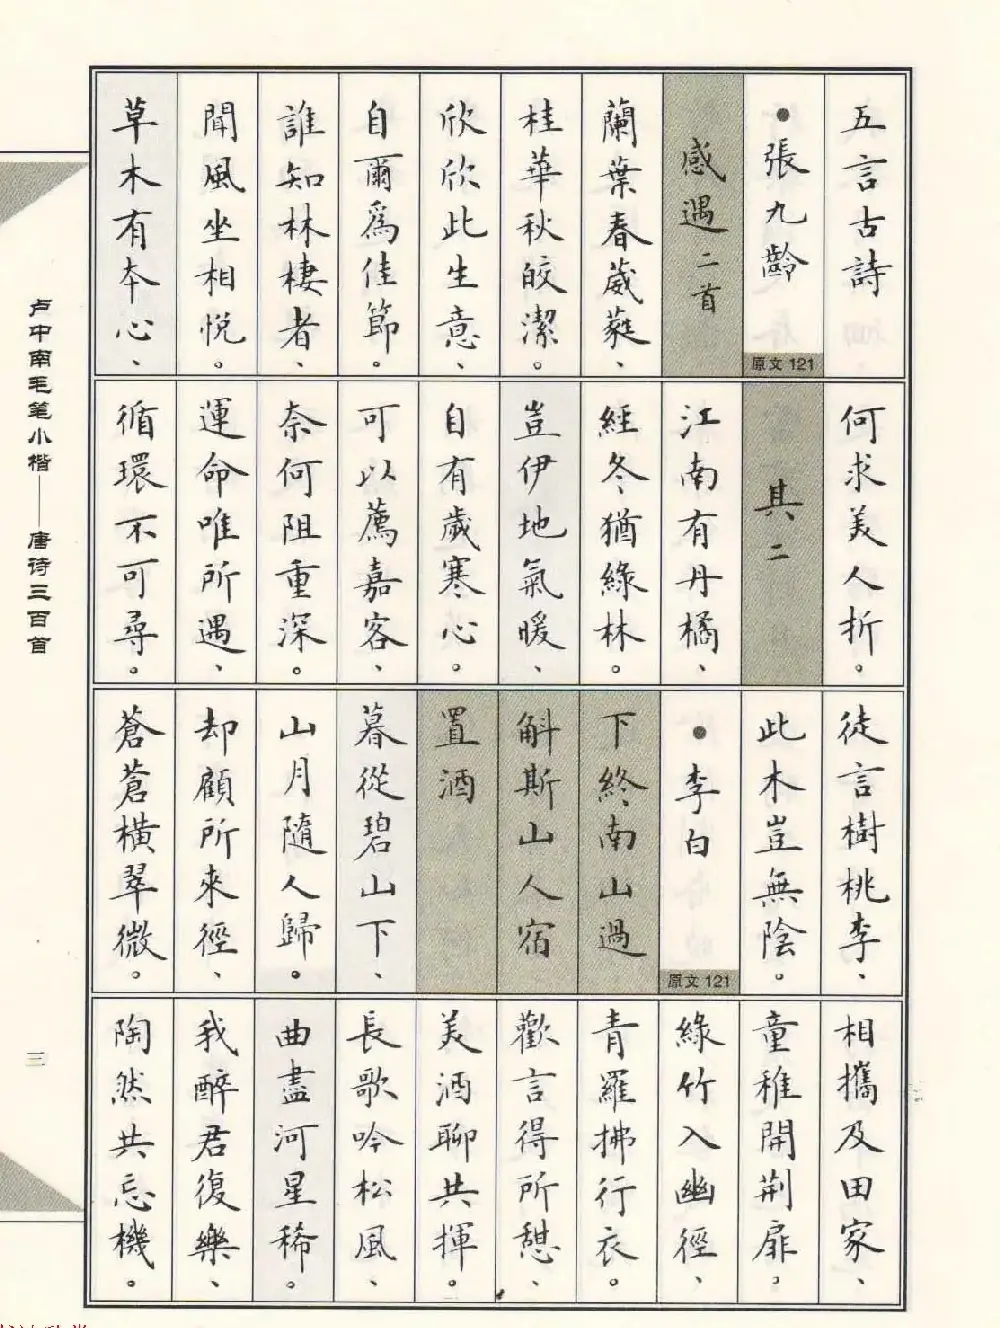 五言古詩
•張九齡
原文 121
感遇二首
蘭葉春葳蕤、
桂華秋皎潔。
欣欣此生意、
自爾爲佳節。
誰知林棲者、
聞風坐相悅。
草木有本心、
何求美人折。
其二
江南有丹橘、
經冬猶綠林。
豈伊地氣暖、
自有歲寒心。
可以薦嘉客、
奈何阻重深。
運命唯所遇、
循環不可尋。
徒言樹桃李、
此木豈無陰。
•李白
原文 121
下終南山過
斛斯山人宿
置酒
暮從碧山下、
山月隨人歸。
却顧所來徑、
蒼蒼橫翠微。
相攜及田家、
童稚開荆扉。
綠竹入幽徑、
青羅拂行衣。
歡言得所憩、
美酒聊共揮。
長歌吟松風、
曲盡河星稀。
我醉君復樂、
陶然共忘機。
卢中南毛笔小楷——唐诗三百首
三